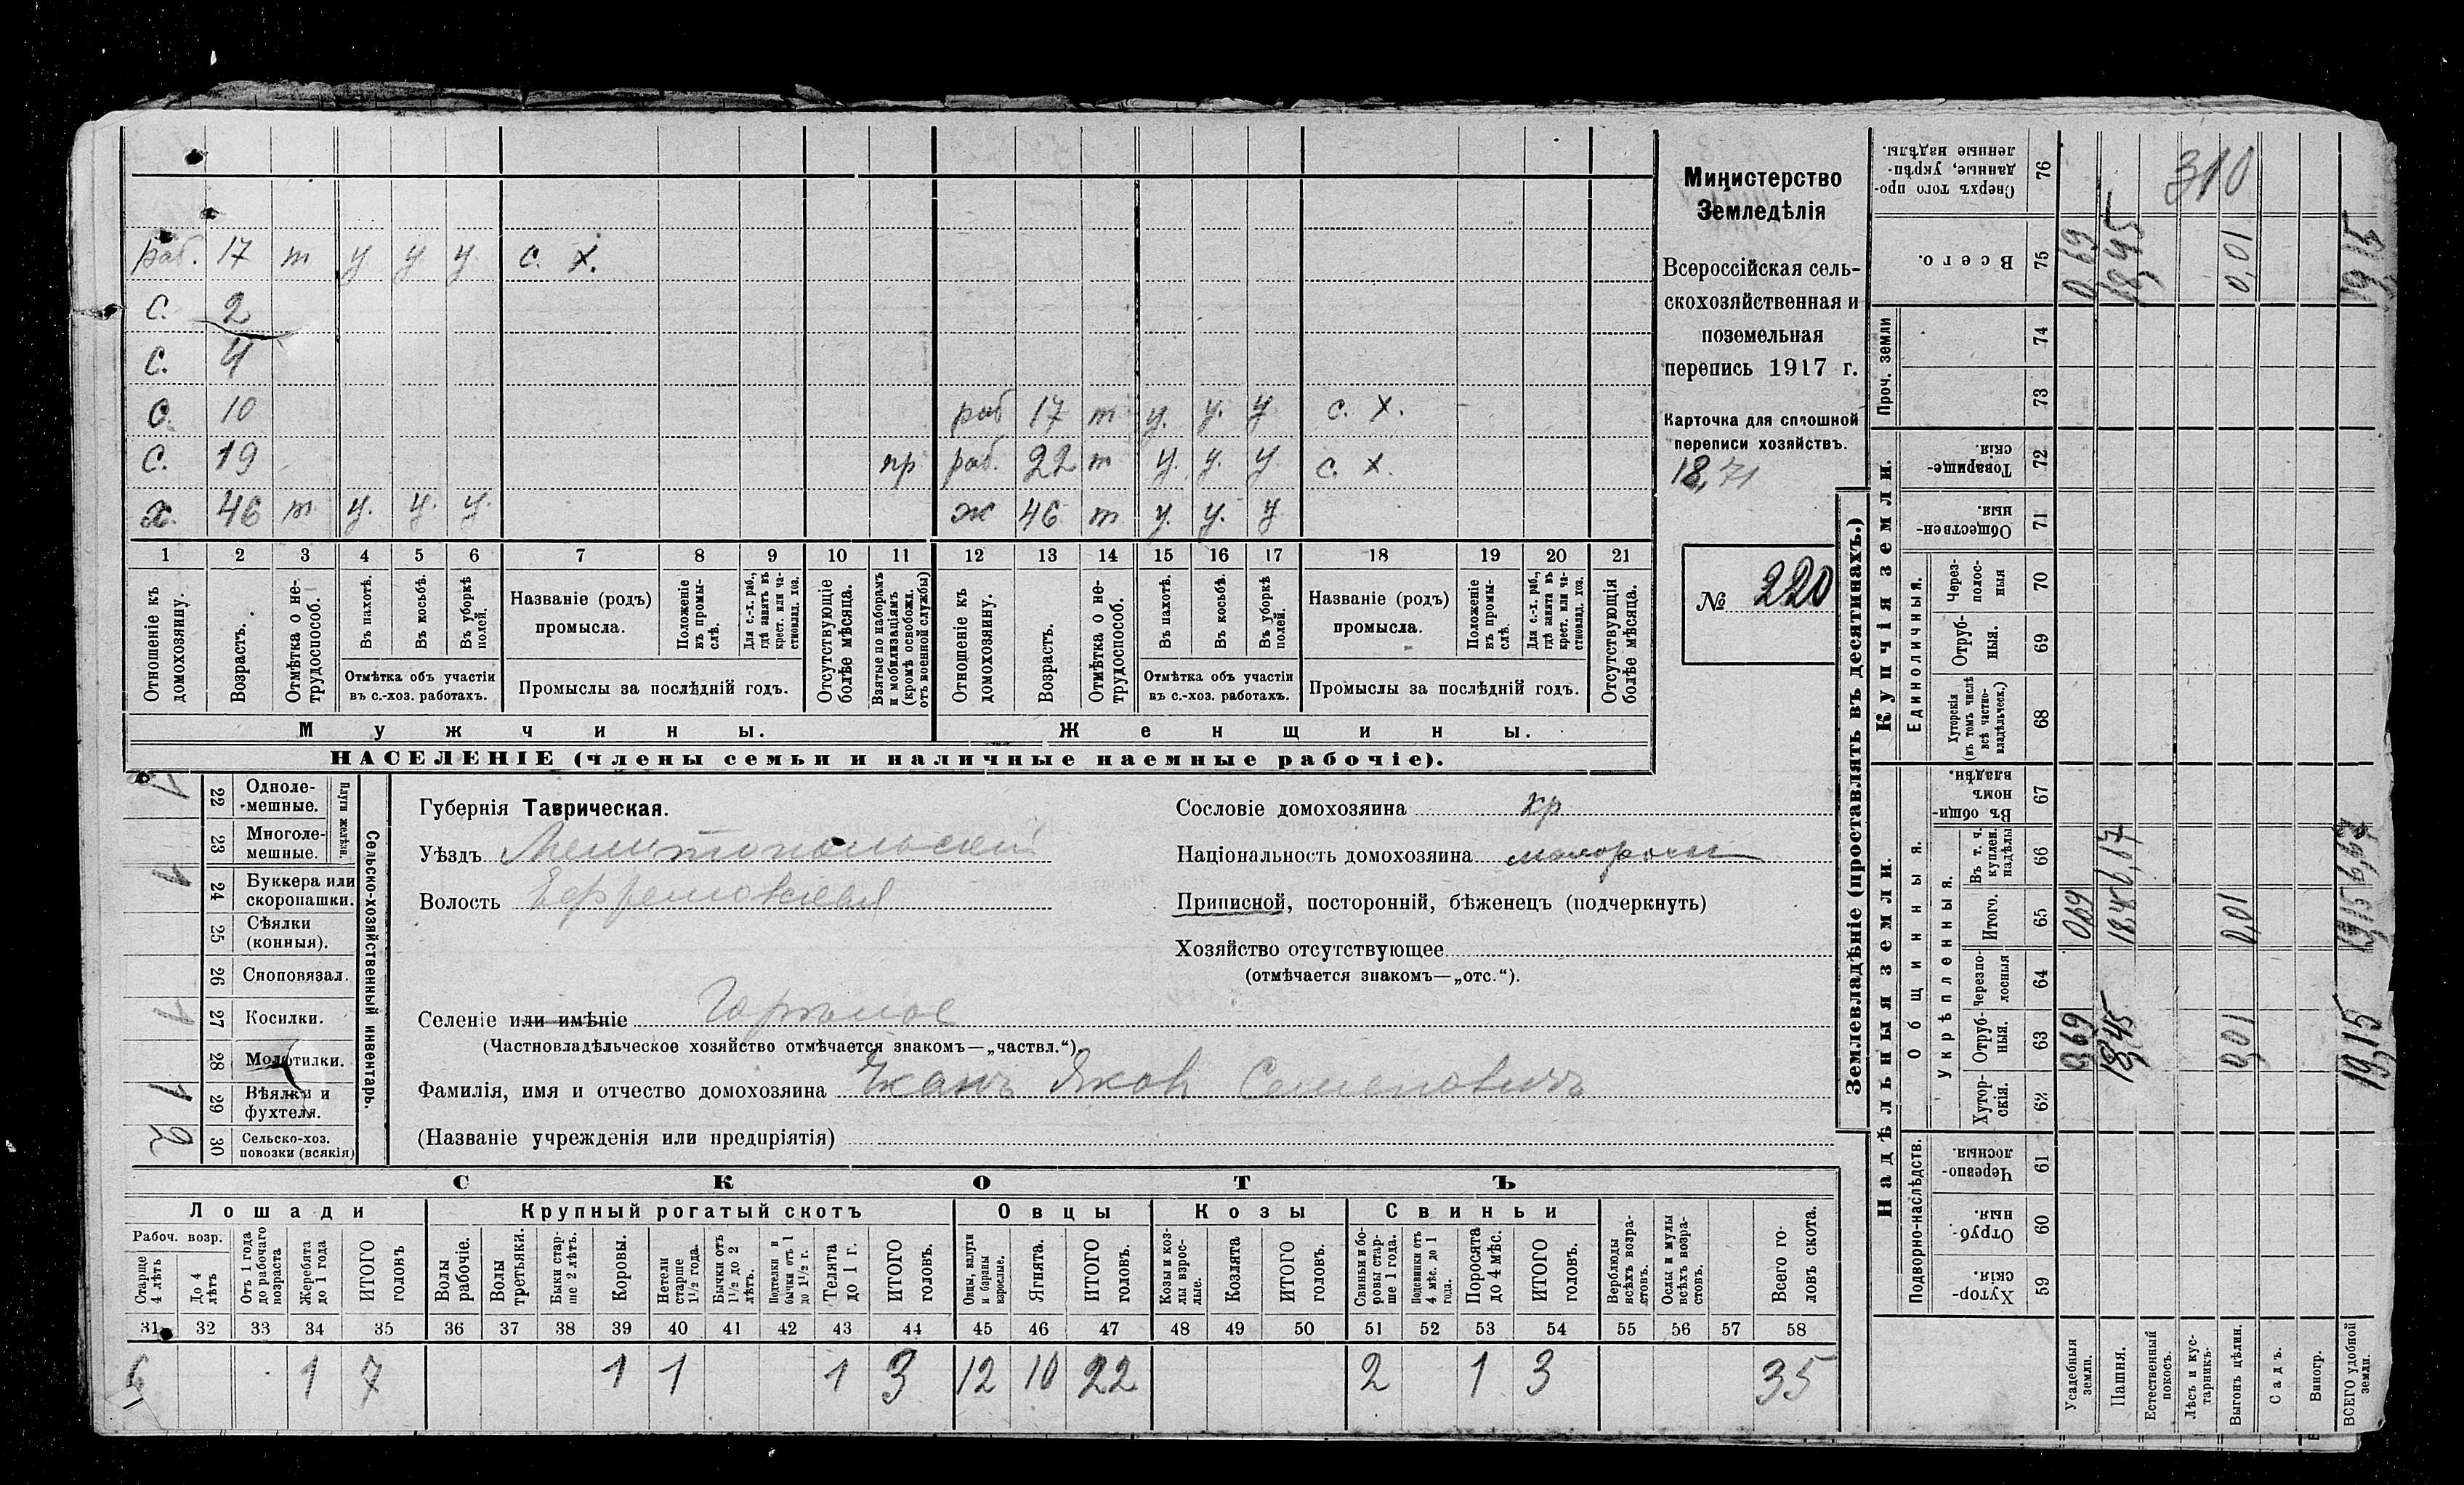 раб. 17 т у у у с. х.
с. 2
с. 4
с. 10 раб 17 т у. у. у с. х.
с. 19 пр раб. 22 т у. у. у с. х.
х. 46 т у. у. у. ж 46 т у. у. у
1 2 3 4 5 6 7 8 9 10 11 12 13 14 15 16 17 18 19 20 21
Отношеніе къ домохозяину.
Возрастъ.
Отмѣтка о нетрудоспособ.
Въ пахотѣ.
Въ косьбѣ.
Въ уборкѣ полей.
Отмѣтка объ участіи
въ с.-хоз. работахъ.
Названіе (родъ)
промысла.
Положеніе въ промыслѣ.
Для с.-х. раб., гдѣ занятъ въ крест. или частновлад. хоз.
Промыслы за послѣдній годъ.
Отсутствующіе болѣе мѣсяца.
Взятые по наборамъ и мобилизаціямъ (кромѣ освобожд. отъ военной службы)
Отношеніе къ домохозяину.
Возрастъ.
Отмѣтка о нетрудоспособ.
Въ пахотѣ.
Въ косьбѣ.
Въ уборкѣ полей.
Отмѣтка объ участіи
въ с.-хоз. работахъ.
Названіе (родъ)
промысла.
Положеніе въ промыслѣ.
Для с.-х. раб., гдѣ занята въ крест. или частновлад. хоз.
Промыслы за послѣдній годъ.
Отсутствующія болѣе мѣсяца.
Мужчины. Женщины.
НАСЕЛЕНІЕ (члены семьи и наличные наемные рабочіе).
Министерство
Земледѣлія
Всероссійская сель-
скохозяйственная и
поземельная
перепись 1917 г.
Карточка для сплошной
переписи хозяйствъ.
18,71
№ 220
Сельско-хозяйственный инвентарь.
Плуги желѣзн.
1 22 Одноле-
мешные.
23 Многоле-
мешные.
1 24 Буккера или
скоропашки.
25 Сѣялки
(конныя).
26 Сноповязал.
1 27 Косилки.
28 Молотилки.
1 29 Вѣялки и
фухтеля.
2 30 Сельско-хоз.
повозки (всякія)
Губернія Таврическая.
Уѣздъ Мелитопольскій
Волость Ефремовская
Селеніе или имѣніе
(Частновладѣльческое хозяйство отмѣчается знакомъ—„частвл.“).
Фамилія, имя и отчество домохозяина Чканъ Яковъ Семеновичъ
(Названіе учрежденія или предпріятія)
Сословіе домохозяина кр
Національность домохозяина малороссъ
Приписной, посторонній, бѣженецъ (подчеркнуть)
Хозяйство отсутствующее
(отмѣчается знакомъ—„отс.“).
СКОТЪ
Лошади Крупный рогатый скотъ Овцы Козы Свиньи
Рабоч. возр.
Старше 4 лѣтъ
До 4 лѣтъ
Отъ 1 года до рабочаго возраста
Жеребята до 1 года
ИТОГО головъ
Волы рабочіе.
Волы третьяки.
Быки старше 2 лѣтъ.
Коровы.
Нетели старше 1½ года.
Бычки отъ 1½ до 2 лѣтъ.
Подтелки и бычки отъ 1 до 1½ г.
Телята до 1 г.
ИТОГО головъ.
Овцы, валухи и бараны взрослые.
Ягнята.
ИТОГО головъ.
Козы и козлы взрослые.
Козлята
ИТОГО головъ.
Свиньи и боровы старше 1 года.
Подсвинки отъ 4 мѣс. до 1 года.
Поросята до 4 мѣс.
ИТОГО головъ.
Верблюды всѣхъ возрастовъ.
Ослы и мулы всѣхъ возрастовъ.
Всего головъ скота.
31 32 33 34 35 36 37 38 39 40 41 42 43 44 45 46 47 48 49 50 51 52 53 54 55 56 57 58
6 1 7 1 1 1 3 12 10 22 2 1 3 35
Землевладѣніе (проставлять въ десятинахъ.)
Надѣльныя земли. Купчія земли. Проч. земли
Подворно-наслѣдств.
Общинныя.
Укрѣпленныя.
Единоличныя.
Сверхъ того проданные, укрѣпленные надѣлы. 76 310
Всего. 75 0,69 18,45 0,01 19,15
74
73
Товарищескія. 72
Общественныя. 71
Черезполосныя 70
Отрубныя. 69
Хуторскія (въ томъ числѣ всѣ частновладѣльческ.) 68
Въ общинномъ владѣн. 67
Въ т. ч. куплен. надѣлы 66
Итого. 65 0,69 0,01
Черезполосныя 64
Отрубныя. 63 0,69 18,45 0,01 19,15
Хуторскія. 62
Черезполосныя. 61
Отрубныя. 60
Хуторскія. 59
Усадебныя земли.
Пашня.
Естественный покосъ.
Лѣсъ и кустарникъ.
Выгонъ цѣлин.
Садъ.
Виногр.
ВСЕГО удобной земли.